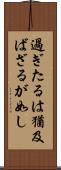 過ぎたるは猶及
ばざるが如し